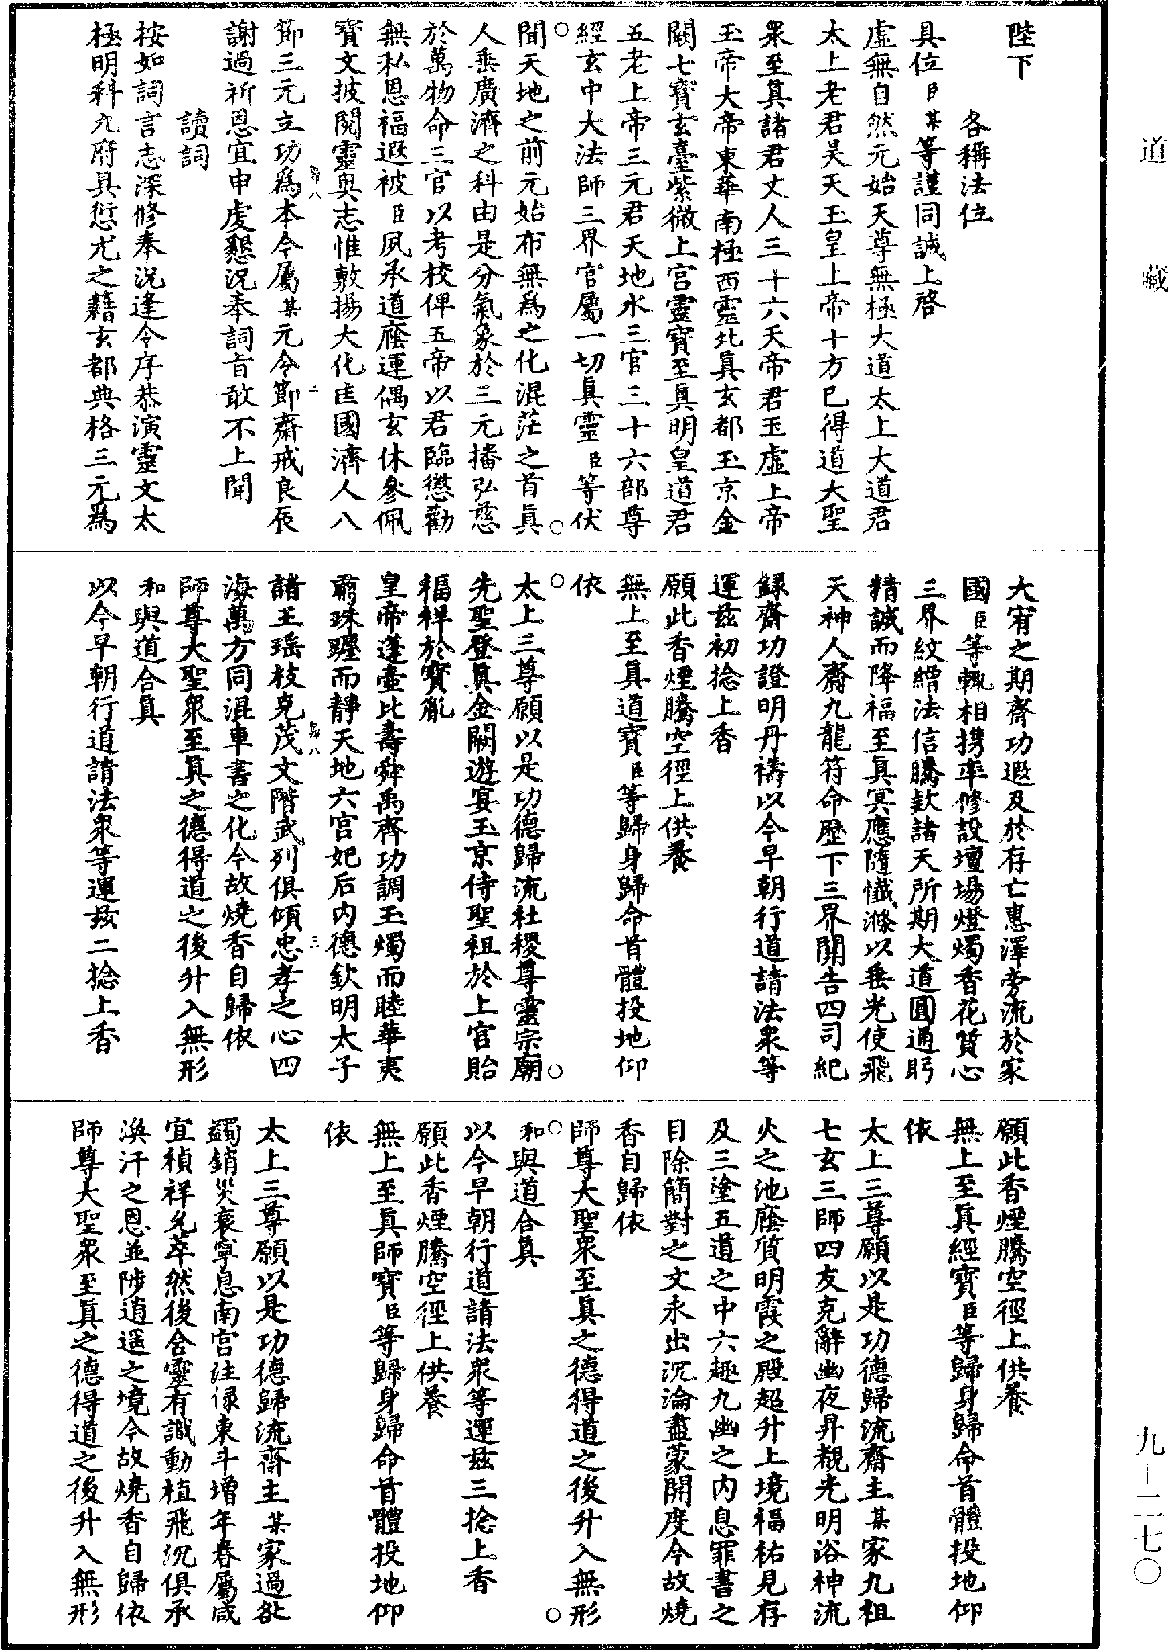 道藏
陛下
各稱法位
具位臣某等謹同誠上啓
虛無自然元始天尊無極大道太上大道君
太上老君昊天玉皇上帝十方已得道大聖
衆至真諸君丈人三十六天帝君玉虛上帝
玉帝大帝東華南極西靈北真玄都玉京金
闕七寶玄臺紫微上宮靈寶至真明皇道君
五老上帝三元君天地水三官三十六部尊
經玄中大法師三界官屬一切真靈臣等伏
聞天地之前元始布無爲之化混茫之首真
人垂廣濟之科由是分氣象於三元播弘慈
於萬物命三官以考校俾五帝以君臨懲勸
無私恩福遐被臣夙承道廕運偶玄休參佩
寶文披閱靈奧志惟敷揚大化匡國濟人八
節三元立功爲本今屬某元令節齋戒良辰
謝過祈恩宜申虔懇況奉詞旨敢不上聞
讀詞
按如詞言志深修奉況逢令序恭演靈文太
極明科九府具愆尤之籍玄都典格三元爲
大宥之期齋功遐及於存亡惠澤旁流於家
國臣等輒相携率修設壇場燈燭香花質心
三界紋繒法信騰欵諸天所期大道圓通眄
精誠而降福至真冥應隨懺滌以垂光使飛
天神人齋九龍符命歷下三界關告四司紀
錄齋功證明丹禱以今早朝行道請法衆等
運兹初捻上香
願此香煙騰空徑上供養
無上至真道寶臣等歸身歸命首體投地仰
依
太上三尊願以是功德歸流社稷尊靈宗廟
先聖登真金闕遊宴玉京侍聖祖於上宮貽
福祥於寶胤
皇帝蓬壺比壽舜禹齊功調玉燭而睦華夷
朗珠躔而靜天地六宮妃后内德欽明太子
諸王瑶枝克茂文階武列俱傾忠孝之心四
海萬方同混車書之化今故燒香自歸依
師尊大聖衆至真之德得道之後升入無形
和與道合真
以今早朝行道請法衆等運兹二捻上香
願此香煙騰空徑上供養
無上至真經寶臣等歸身歸命首體投地仰
依
太上三尊願以是功德歸流齋主某家九祖
七玄三師四友克辭幽夜昇覩光明浴神流
火之池廕質明霞之殿超升上境福祐見存
及三塗五道之中六趣九幽之内息罪書之
目除簡對之文永出沉淪盡蒙開度今故燒
香自歸依
師尊大聖衆至真之德得道之後升入無形
和與道合真
以今早朝行道請法衆等運兹三捻上香
願此香煙騰空徑上供養
無上至真師寶臣等歸身歸命首體投地仰
依
太上三尊願以是功德歸流齋主某家過愆
蠲銷災衰寧息南宮注祿東斗增年眷屬咸
宜禎祥允萃然後含靈有識動植飛沉俱承
渙汗之恩並陟逍遥之境今故燒香自歸依
師尊大聖衆至真之德得道之後升入無形
九—二七〇